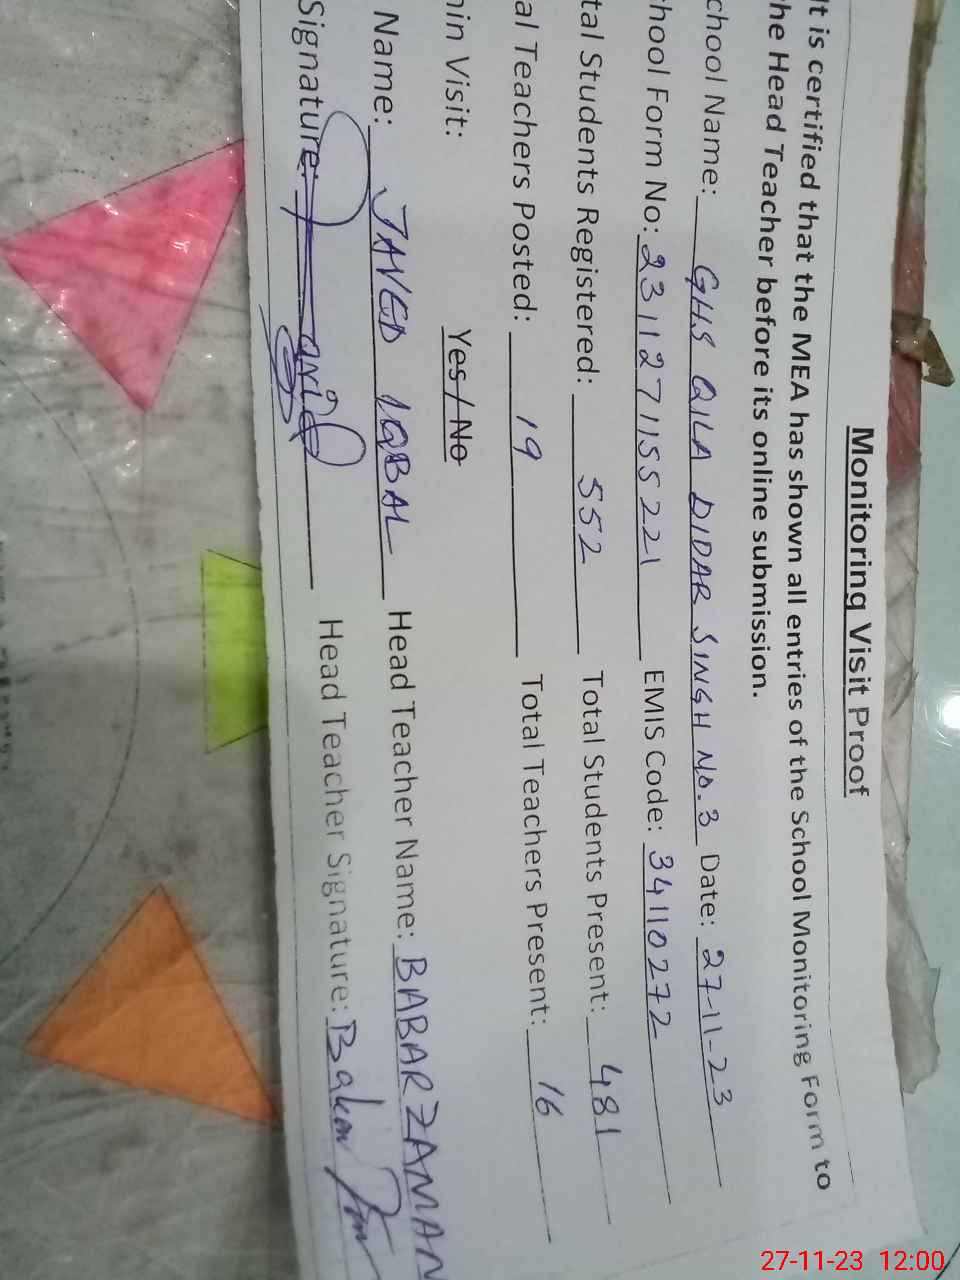 Monitoring Visit Proof
It is certified that the MEA has shown all entries of the School Monitoring Form to
he Head Teacher before its online submission.
chool Name: GHS QILA DIDAR SINGH NO.3 Date: 27-11-23
hool Form No: 2311271155221 EMIS Code: 34110272
tal Students Registered: 552 Total Students Present: 481
al Teachers Posted: 19 Total Teachers Present: 16
in Visit: Yes / No
Name: JAVED IQBAL Head Teacher Name: BABAR ZAMAN
Signature: Head Teacher Signature:
27-11-23 12:00